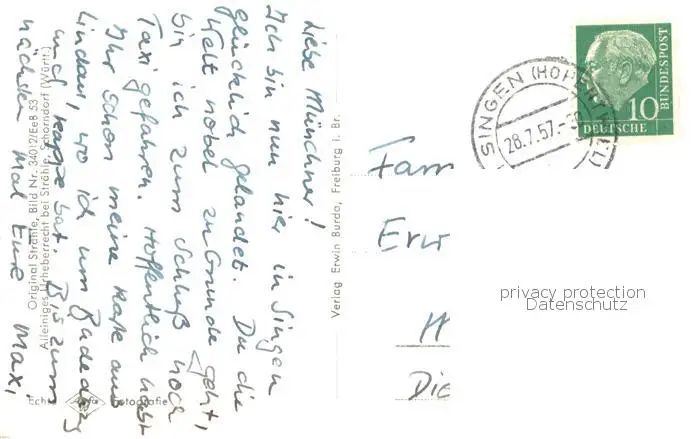 Liebe Münchner!
Ich bin nun hier in Singen
glücklich gelandet. Da die
Welt nobel zu Grunde geht,
bin ich zum Schluß noch
Taxi gefahren. Hoffentlich habt
Ihr schon meine Karte aus
Lindau, wo ich um
und bat. Bis zum
nächsten Mal Eure Maxi,
Original Strähle, Bild Nr. 34012/EeB 53
Alleiniges Urheberrecht bei Strähle, Schorndorf (Württ.)
Echte Agfa Fotografie
Verlag Erwin Burda, Freiburg i. Br.
SINGEN (HOHENTWIEL)
28.7.57.-
10
DEUTSCHE
BUNDESPOST
Fam
Erw
Die
privacy protection
Datenschutz